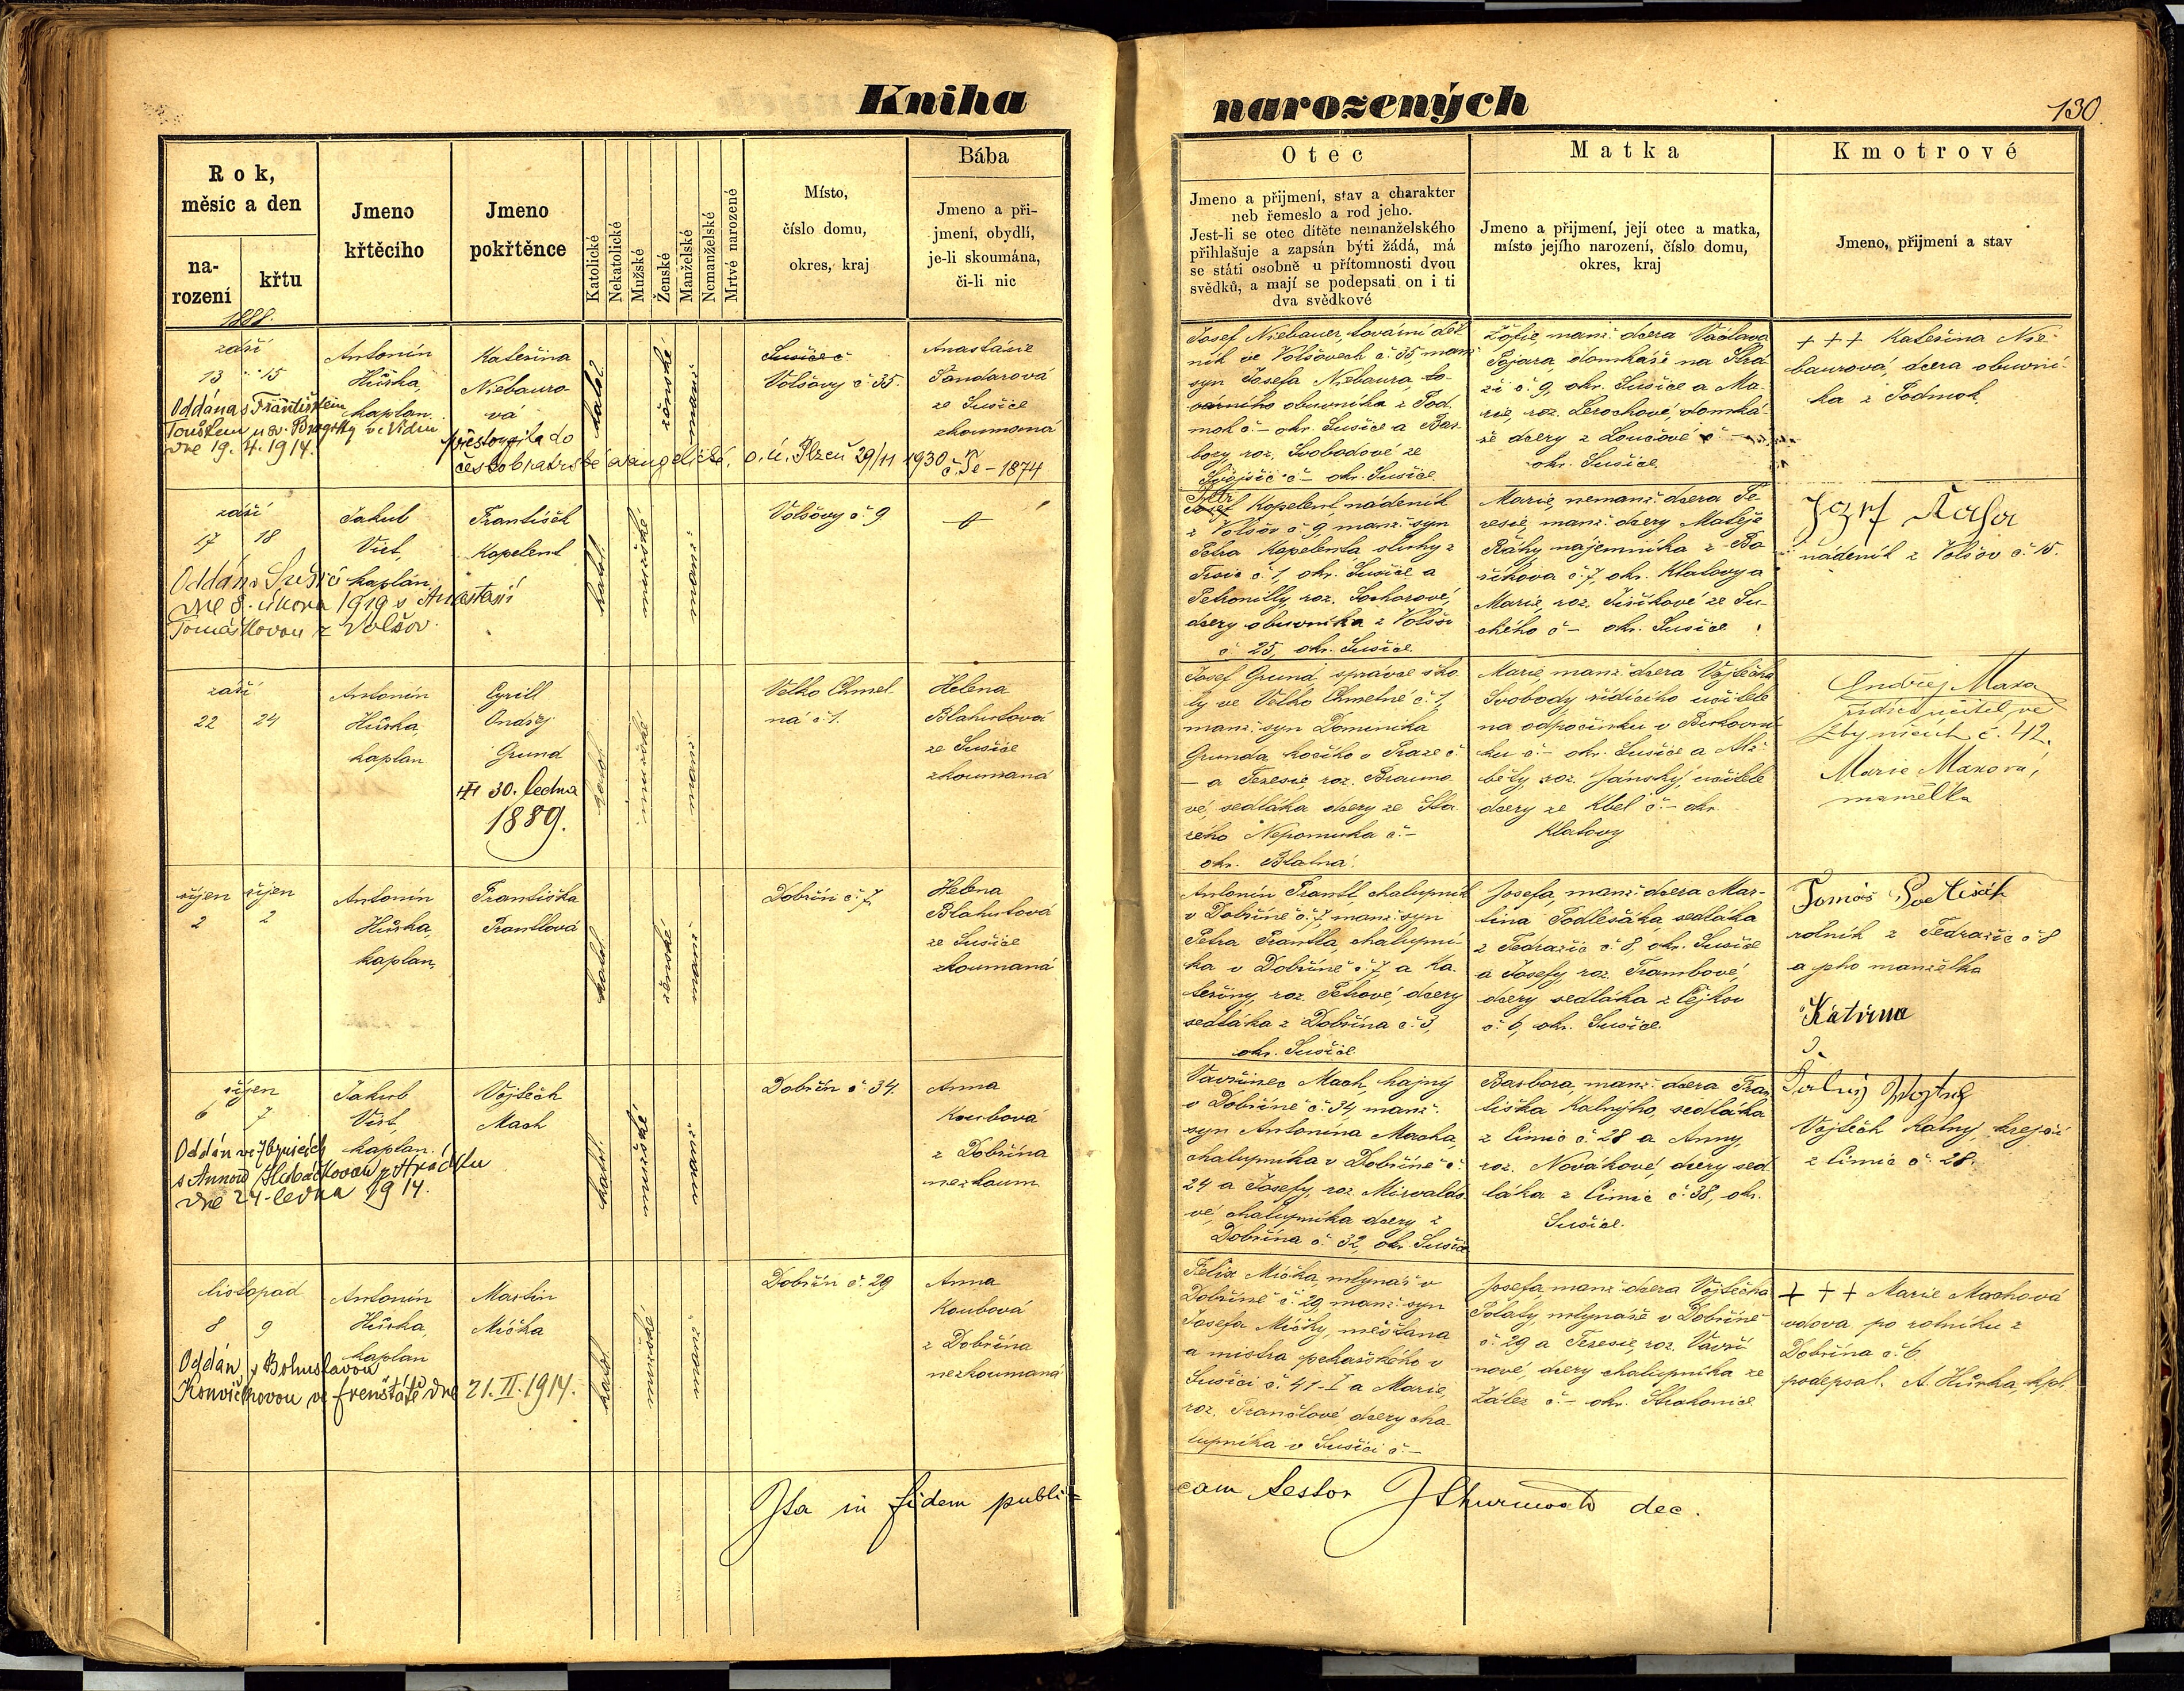 Kniha
narozených
130.
Rok,
měsíc a den
na-
rození
křtu
Jmeno
křtěcího
Jmeno
pokřtěnce
Katolické
Nekatolické
Mužské
Ženské
Manželské
Nemanželské
Mrtvé narozené
Místo,
číslo domu,
okres, kraj
Bába
Jmeno a při-
jmení, obydlí,
je-li skoumána,
či-li nic
Otec
Jmeno a přijmení, stav a charakter
neb řemeslo a rod jeho.
Jest-li se otec dítěte nemanželského
přihlašuje a zapsán býti žádá, má
se státi osobně u přítomnosti dvou
svědků, a mají se podepsati on i ti
dva svědkové
Matka
Jmeno a přijmení, její otec a matka,
místo jejího narození, číslo domu,
okres, kraj
Kmotrové
Jmeno, přijmení a stav
1888.
září
13 15
Oddána s Františkem
dne 19. 4. 1914.
Antonín
Hůrka,
kaplan.
Kateřina
Niebauro-
vá
přestoupila do
českobratrské evangelické, o. ú. Plzeň 29/11 1930 č. Te - 1874
katol.
ženské
manž.
Sušice č.
Volšovy č. 35.
Anastázie
Šandarová
ze Sušice
zkoumaná
Josef Niebauer, tovární děl-
ník ve Volšovech č. 35, manž.
syn Josefa Niebaura, to-
várního obuvníka z Pod-
mok č. - okr. Sušice a Bar-
bory, roz. Svobodové ze
Svojšic č. - okr. Sušice
Žofie, manž. dcera Václava
Pojara, domkáře na Strá-
ži č. 9, okr. Sušice a Ma-
rie, roz. Lerochové, domká-
ře dcery z Loučové č. -
okr. Sušice.
+++ Kateřina Nie-
baurová, dcera obuvní-
ka z Podmok.
září
17 18
Oddán v Sušici
dne 8. února 1919 s Anastasií
Tomáškovou z Volšov.
Jakub
Vict,
kaplan.
František
Kopelent
katol.
mužské
manž.
Volšovy č. 9
Petr
Josef Kopelent, nádeník
z Volšov č. 9 manž. syn
Petra Kopelenta, sluhy z
č. 1, okr. Sušice a
Petronilly, roz. Sochorové,
dcery obuvníka z Volšov
č. 25, okr. Sušice.
Marie, nemanž. dcera Te-
resie, manž. dcery Matěje
Ráhy nájemníka z Bo-
říkova č. 7, okr. Klatovy a
Marie, roz. Jiříkové ze Su-
chého č. - okr. Sušice
nádeník z Volšov č. 15.
září
22 24
Antonín
Hůrka,
kaplan
Cyrill
Ondřej
Grund
30. ledna
1889.
katol.
mužské
manž.
Velko Chmel-
ná č. 1.
Helena
Blahutová
ze Sušice
zkoumaná
Josef Grund, správce ško-
ly ve Velko Chmelné č. 1,
manž. syn Dominika
Grunda, kočího v Praze č.
- a Teresie, roz. Brauno-
vé, sedláka dcery ze Sta-
rého Nepomuka č. -
okr. Blatná.
Marie, manž. dcera Vojtěcha
Svobody řídícího učitele
na odpočinku v Petrovi-
č. - okr. Sušice a Alž-
běty, roz. Jánský, učitele
dcery ze Kbel č. - okr.
Klatovy
Ondřej Maxa
řídící učitel ve
Zbynicích č. 42.
Marie Maxová,
manželka
říjen říjen
2 2
Antonín
Hůrka,
kaplan.
Františka
Prantlová
katol.
ženské
manž.
Dobršín č. 7
Helena
Blahutová
ze Sušice
zkoumaná
Antonín Prantl, chalupník
v Dobršíně č. 7, manž. syn
Petra Prantla, chalupní-
ka v Dobršíně č. 7, a Ka-
teřiny, roz. Petrové, dcery
sedláka z Dobršína č. 3,
okr. Sušice.
Josefa, manž. dcera Mar-
tina Podlešáka, sedláka
z Tedražic č. 8, okr. Sušice
a Josefy, roz. Trambové,
dcery sedláka z Čejkov
č. 6, okr. Sušice.
Tomáš
rolník z Tedražic č. 8
a jeho manželka
Katřina
říjen
6 7
Oddán ve Zbynicích
s Annou
dne 24. ledna 1914.
Jakub
Vict,
kaplan.
Vojtěch
Mach
katol.
mužské
manž.
Dobršín č. 34.
Anna
Koubová
z Dobršína
nezkoum.
Vavřinec Mach, hajný
v Dobršíně č. 34, manž.
syn Antonína Macha,
chalupníka v Dobršíně č.
24 a Josefy, roz. Mirvaldo-
vé, chalupníka dcery z
Dobršína č. 32, okr. Sušice
Barbora, manž. dcera Fran-
tiška Kalnýho, sedláka
z Čimic č. 28 a Anny,
roz. Novákové, dcery sed-
láka z Čimic č. 38, okr.
Sušice.
Vojtěch Kalný, krejčí
z Čimic č. 28.
listopad
8 9
Oddán s Bohuslavou
Konvičkovou ve Frenštátě dne 21. II. 1914.
Antonín
Hůrka,
kaplan
Martin
Mička
katol.
mužské
manž.
Dobršín č. 29
Anna
Koubová
z Dobršína
nezkoumaná
Felix Mička, mlynář v
Dobršíně č. 29 manž. syn
Josefa Mičky, měšťana
a mistra pekařského v
Sušici č. 41-I a Marie,
roz. Prantlové, dcery cha-
lupníka v Sušici č. -
Josefa, manž. dcera Vojtěcha
Polaty, mlynáře v Dobršíně
č. 29 a Teresie, roz. Vavři-
nové, dcery chalupníka ze
Zález č. - okr. Strakonice
+++ Marie Machová
vdova po rolníku z
Dobršína č. 6
podepsal. A. Hůrka, kpl.
Ita in fidem publi-
cam testor dec.